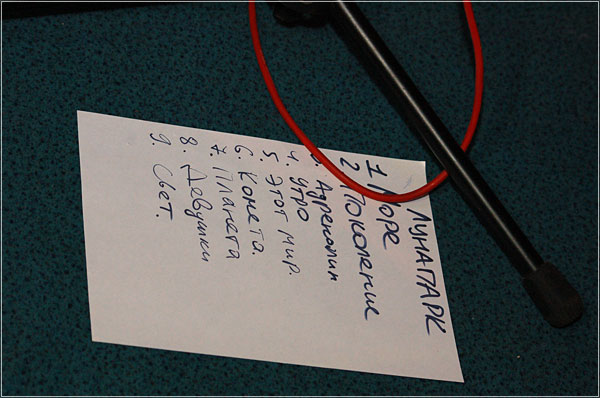 ЛУНАПАРК
1. Море
2. Поколение
3. Адреналин
4. Утро
5. Этот мир.
6. Комета.
7. Планета
8. Девушки
9. Свет.